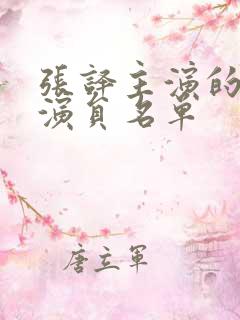 張譯主演的
演員名單
唐立軍